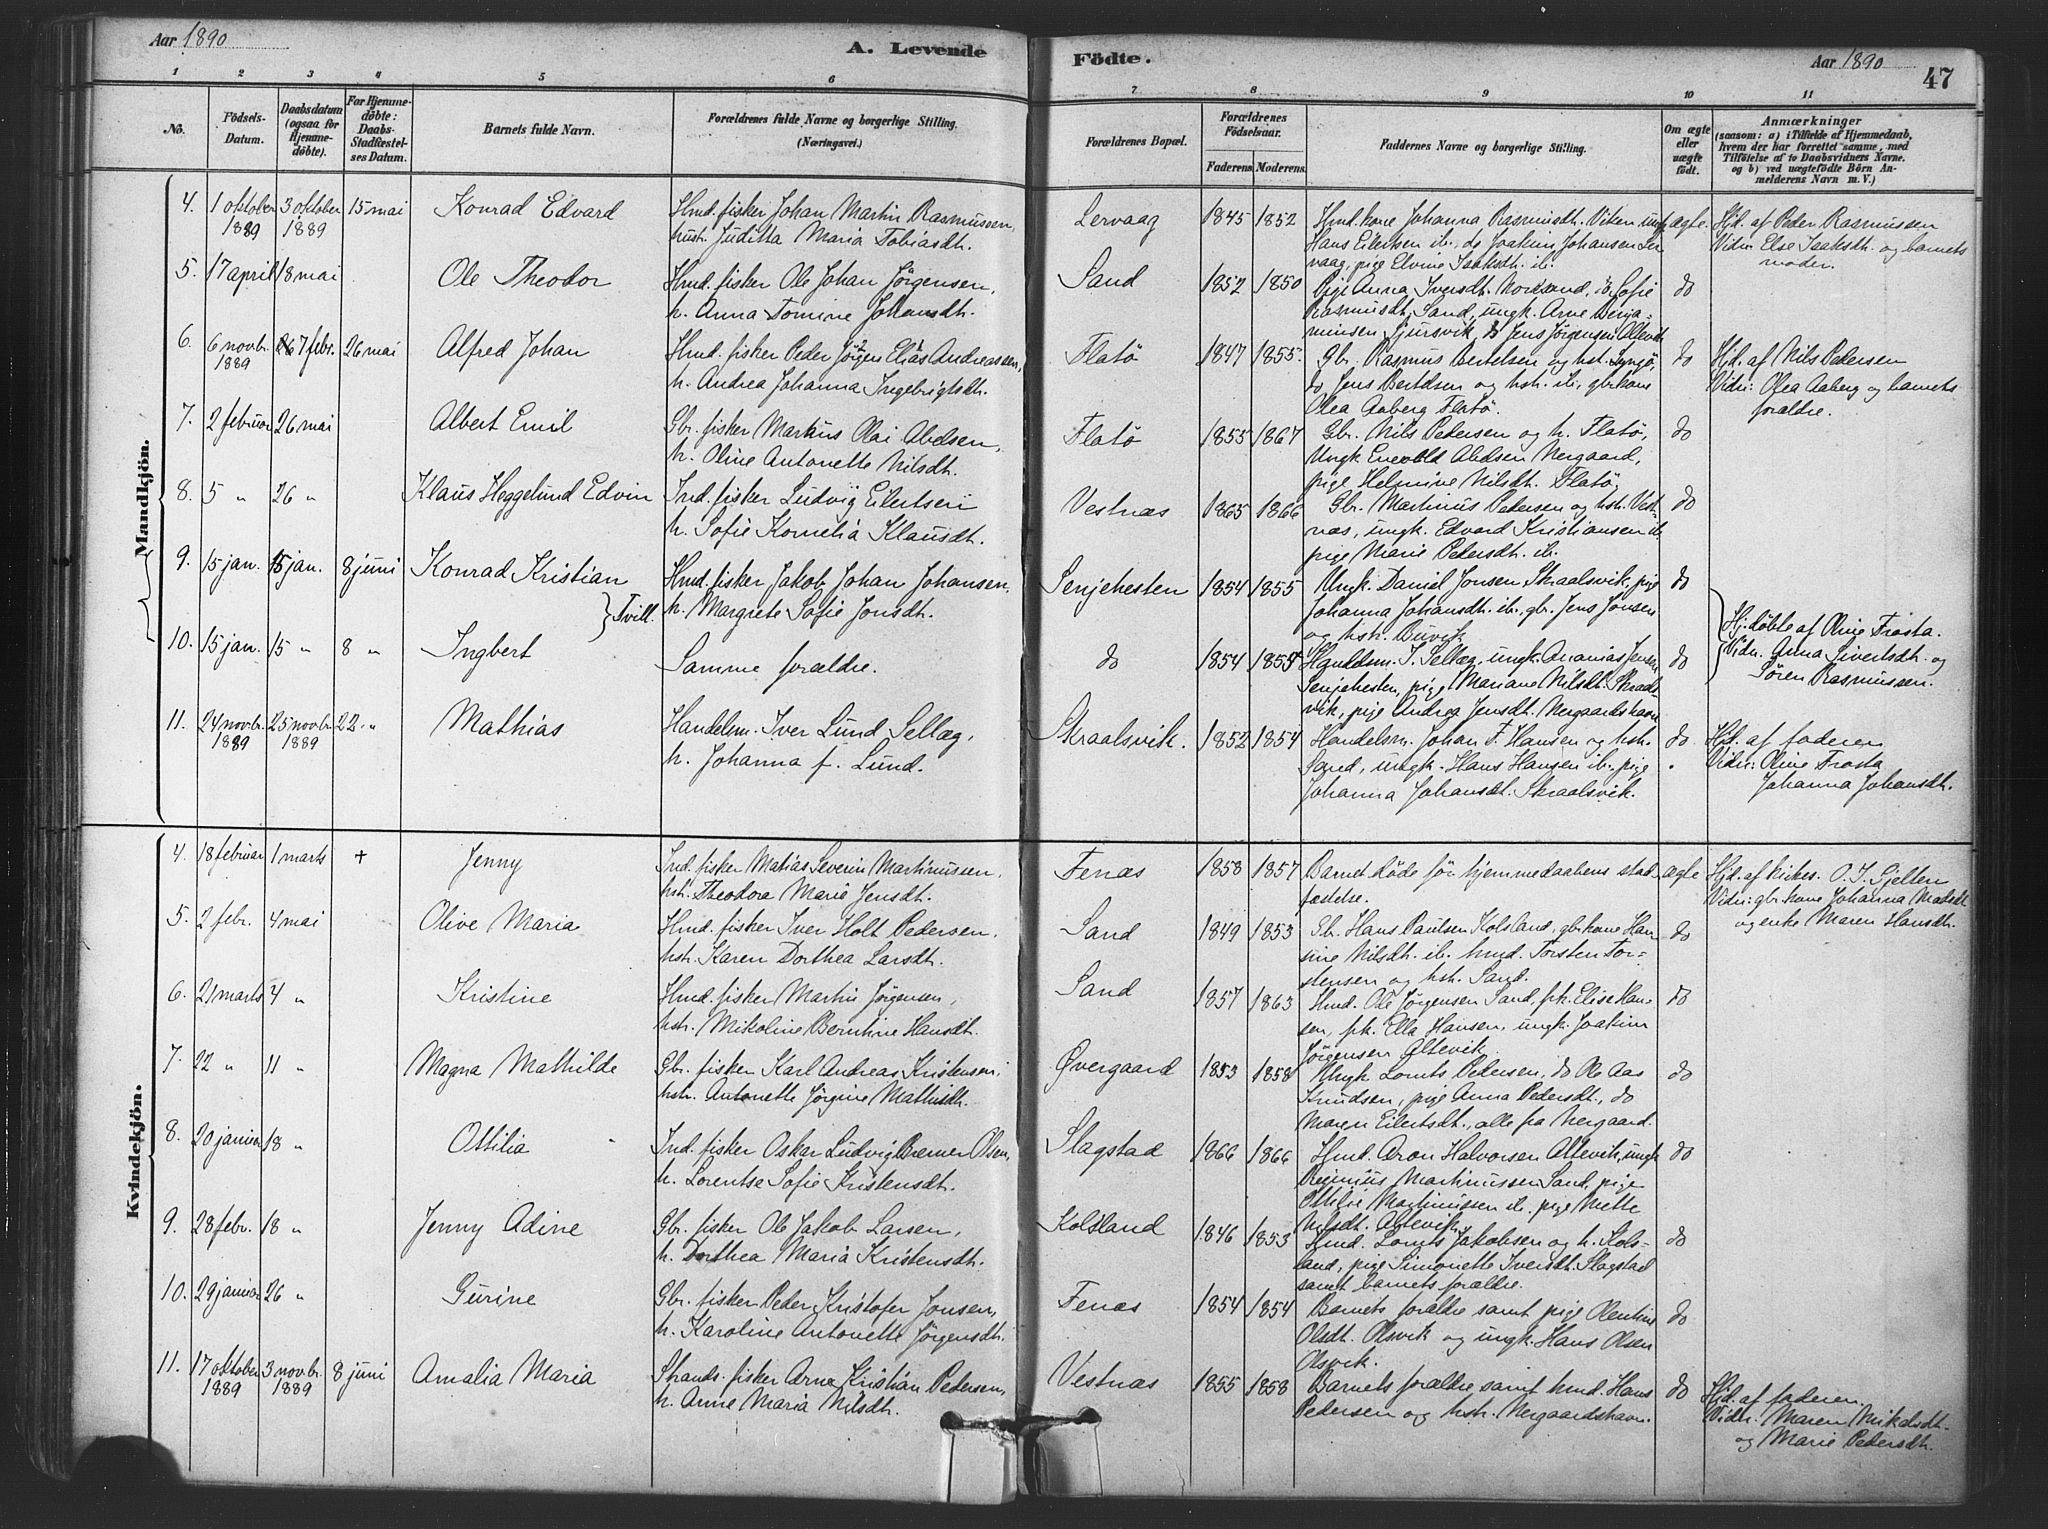 Aar 1890
A. Levende
Födte.
Aar 1890
47
1 2 3 4 5 6 7 8 9 10 11
No.
Födsels-
Datum.
Daabsdatum
(ogsaa for
Hjemme-
döbte).
For Hjemme-
döbte:
Daabs-
Stadfæstel-
ses Datum.
Barnets fulde Navn.
Forældrenes fulde Navne og borgerlige Stilling.
(Næringsvei.)
Forældrenes Bopæl.
Forældrenes
Födselsaar.
Faderens Moderens
Faddernes Navne og borgerlige Stilling.
Om ægte
eller
uægte
födt.
Anmærkninger
(saasom: a) i Tilfælde af Hjemmedaab,
hvem der har forrettet samme, med
Tilföielse af to Daabsvidners Navne,
og b) ved uægtefödte Börn An-
melderens Navn m. V.)
Mandkjön.
4. 1 oktober 3 oktober 15 mai Konrad Edvard Hmd. fisker Johan Martin Rasmussen, Lervaag 1845 1852 Hmd. kone Johanna Rasmusdt. Viken, ungk. ægte. Hjd. af Peder Rasmussen
1889 1889 hust. Juditta Maria Tobiasdt. Hans Eilertsen ib., do Joakim Johansen Ler- Vidn: Else Isaksdt. og barnets
vaag, pige Elvine Isaksdt. ib. moder.
5. 17 april 18 mai Ole Theodor Hmd. fisker Ole Johan Jörgensen, Sand 1852 1850 Pige Anna Iversdt. Nordsand, do Sofie do
h. Anna Tomine Johansdt. Rasmusdt. Sand, ungk. Arne Benja-
minsen Gjursvik, do Jens Jörgensen Altevik
6. 6 novbr. 7 febr. 26 mai Alfred Johan Hmd. fisker Peder Jörgen Elias Andreassen, Flatö 1847 1855 Gbr. Rasmus Bertelsen og hst. Lyngö, do Hjd. af Nils Pedersen
1889 h. Andrea Johanna Ingebrigtsdt. do Jens Bertelsen og hst. ib., gbrkone Vidn: Olea Aaberg og barnets
Olea Aaberg Flatö. forældre.
7. 2 februar 26 mai Albert Emil Gbr. fisker Markus Olai Abelsen, Flatö 1855 1867 Gbr. Nils Pedersen og h. Flatö, do
h. Oline Antonette Nilsdt. Ungk. Enevold Abelsen Nergaard,
pige Helmine Nilsdt. Flatö,
8. 5 " 26 " Klaus Heggelund Edvin Ind. fisker Ludvig Eilertsen Vestnæs 1865 1866 Gbr. Martinus Pedersen og hst. Vest- do
h. Sofie Kornelia Klausdt. næs, ungk. Edvard Kristiansen ib.
pige Marie Pedersdt. ib.
9. 15 jan. 15 jan. 8 juni Konrad Kristian Hmd. fisker Jakob Johan Johansen, Senjehesten 1854 1855 Ungk. Daniel Jonsen Skraalsvik, pige do
} Tvill. h. Margrete Sofie Jonsdt. Johanna Johansdt. ib., gbr. Jens Jonsen Hj.döbte af Oline Frosta.
og hst. Buvik
10. 15 jan. 15 " 8 " Ingbert Samme forældre. do 1854 1855 Handelsm. I. Sellæg, ungk. Ananias Jensen do Vidn. Anna Sivertsdt. og
Senjehesten, pige Mariane Nilsdt. Skraals- Sören Rasmussen.
vik, pige Andrea Jensdt. Nergaardshavn
11. 24 novbr. 25 novbr. 22 " Mathias Handelsm. Iver Lund Sellæg, Skraalsvik. 1852 1854 Handelsm. Johan F. Hansen og hst. do Hjd. af faderen
1889 1889 h. Johanna f. Lund. Sand, ungk. Hans Hansen ib. pige Vidn: Oline Frosta
Johanna Johansdt. Skraalsvik. Johanna Johansdt.
Kvindekjön.
4. 18 februar 1 marts + Jenny Ind. fisker Matias Severin Martinussen, Fenæs 1858 1857 Barnet döde för hjemmedaabens stad- ægte Hjd. af kirkes. O. J. Gjelten
hst. Theodora Marie Jensdt. fæstelse. Vidn: gbrkone Johanna Matsdt.
og enke Maren Hansdt.
5. 2 febr. 4 mai Olive Maria Hmd. fisker Iver Holt Pedersen, Sand 1849 1853 Gb. Hans Paulsen Kolsland, gbrkone Han- do
hst. Karen Dorthea Larsdt. sine Nilsdt. ib. hmd. Torsten Tor-
stensen og hst. Sand.
6. 21 marts 4 " Kristine Hmd. fisker Martin Jörgensen, Sand 1857 1863 Hmd. Ole Jörgensen Sand, frk. Elise Han- do
hst. Mikoline Berntine Hansdt. sen, frk. Ella Hansen, ungk. Joakim
Jörgensen Altevik
7. 22 " 11 " Magna Mathilde Gbr. fisker Karl Andreas Kristensen, Øvergaard 1853 1858 Ungk. Lorents Pedersen, do Ole Aas do
hst. Antonette Jörgine Mathisdt. Knudsen, pige Anna Pedersdt., do
Maren Eilertsdt., alle fra Nergaard.
8. 20 januar 18 " Ottilia Ind. fisker Oskar Ludvig Bremer Olsen, Slagstad 1866 1866 Hmd. Aron Halvorsen Altevik, ungk. do
h. Lorentse Sofie Kristensdt. Reginius Martinussen Sand, pige
Ottilie Martinussen ib. pige Mette
Nilsdt. Altevik
9. 28 febr. 18 " Jenny Adine Gbr. fisker Ole Jakob Larsen, Kolsland 1846 1853 Hmd. Lorents Jakobsen og h. Kols- do
h. Dorthea Maria Kristensdt. land, pige Simonette Iversdt. Slagstad
samt barnets forældre.
10. 29 januar 26 " Gurine Gbr. fisker Peder Kristofer Jonsen, Fenæs 1854 1854 Barnets forældre samt pige Olentine do
h. Karoline Antonette Jörgensdt. Olsdt. Olsvik og ungk. Hans Olsen
Olsvik.
11. 17 oktober 3 novbr. 8 juni Amalia Maria Strands. fisker Arne Kristian Pedersen, Vestnæs 1855 1858 Barnets forældre samt hmd. Hans do Hjd. af faderen
1889 1889 h. Anne Maria Nilsdt. Pedersen og hst. Nergaardshavn. Vidn. Maren Mikalsdt.
og Marie Pedersdt.